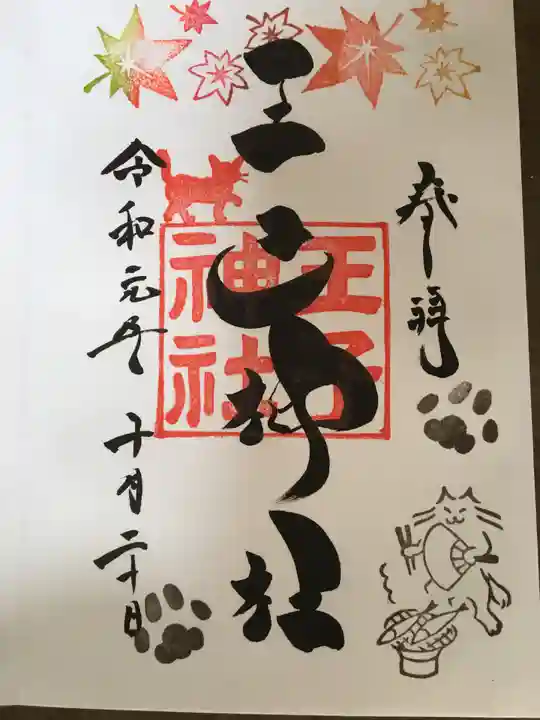 奉拝
王子神社
王子神社
令和元年 十月二十日